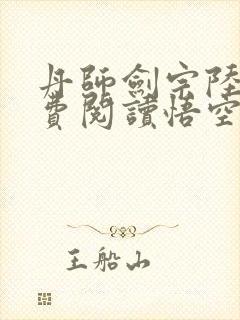 丹師劍宗陸
費閱讀悟空
王船山